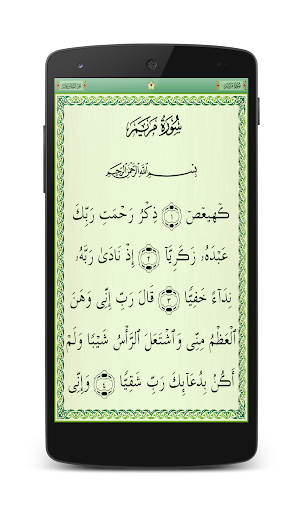 سُورَةُ مَرْيَمَ
بِسْمِ ٱللَّهِ ٱلرَّحْمَٰنِ ٱلرَّحِيمِ
كٓهيعٓصٓ ۝١ ذِكْرُ رَحْمَتِ رَبِّكَ
عَبْدَهُۥ زَكَرِيَّآ ۝٢ إِذْ نَادَىٰ رَبَّهُۥ
نِدَآءً خَفِيًّا ۝٣ قَالَ رَبِّ إِنِّى وَهَنَ
ٱلْعَظْمُ مِنِّى وَٱشْتَعَلَ ٱلرَّأْسُ شَيْبًا وَلَمْ
أَكُنۢ بِدُعَآئِكَ رَبِّ شَقِيًّا ۝٤ وَإِنِّى